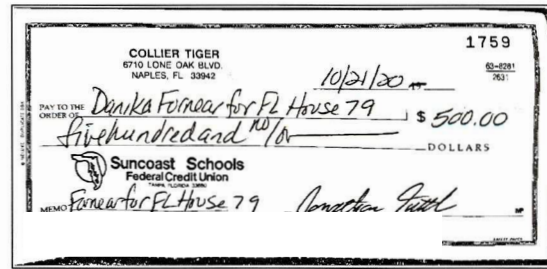 1759
COLLIER TIGER
6710 LONE OAK BLVD.
NAPLES, FL 33942
63-8281
2631
10/21/20
PAY TO THE
ORDER OF Danika Fornear for FL House 79 $ 500.00
five hundred and no/00 DOLLARS
Suncoast Schools
Federal Credit Union
TAMPA, FLORIDA
MEMO Fornear for FL House 79 Jonathan Tuttle
MP